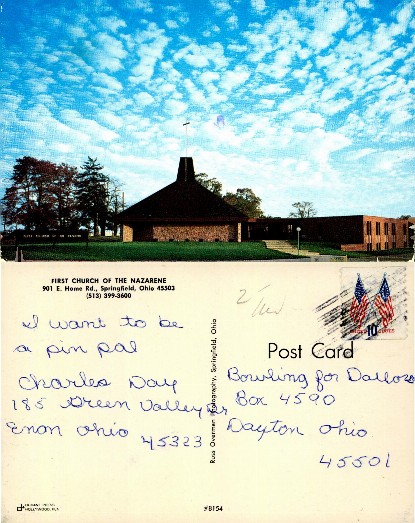 FIRST CHURCH OF THE NAZARENE
901 E. Home Rd., Springfield, Ohio 45503
(513) 399-3600
I want to be
a pin pal
Charles Day
185 Green Valley Dr
Enon Ohio 45323
Ross Overman Photography, Springfield, Ohio
10
Post Card
Bowling for Dallors
Box 4590
Dayton Ohio
45501
HOLLYWOOD, FLA
#8154